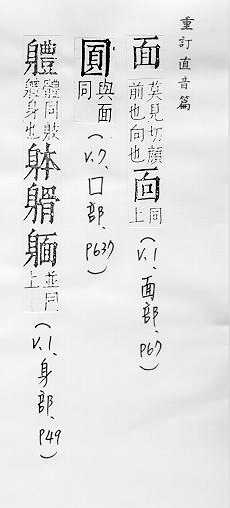 重訂直音篇
面 莫見切顏前也向也 靣 同上 (V.1、面部、P67)
與面同 (V.7、囗部、P637)
軆 體同 身也 躰 並同上 (V.1、身部、P49)